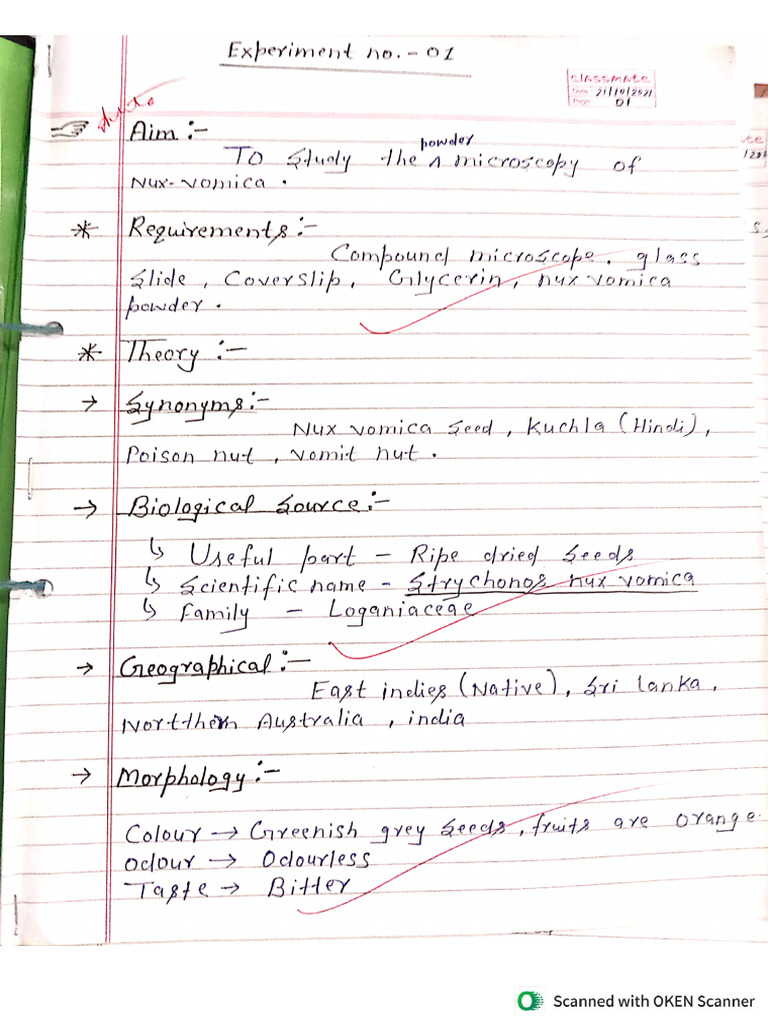 Experiment no. - 01
classmate
Date 21/10/2021
Page 01
Aim :-
To study the powder microscopy of
Nux-vomica .
* Requirements :-
Compound microscope, glass
slide , Coverslip, Glycerin, nux vomica
powder .
* Theory :-
→ Synonyms :-
Nux vomica seed , Kuchla (Hindi) ,
Poison nut , vomit nut .
→ Biological Source :-
↳ Useful part - Ripe dried seeds
↳ Scientific name - Strychonos nux vomica
↳ Family - Loganiaceae
→ Geographical :-
East indies (Native) , Sri lanka ,
Northern Australia , india
→ Morphology :-
Colour → Greenish grey seeds, fruits are orange.
Odour → Odourless
Taste → Bitter
Scanned with OKEN Scanner